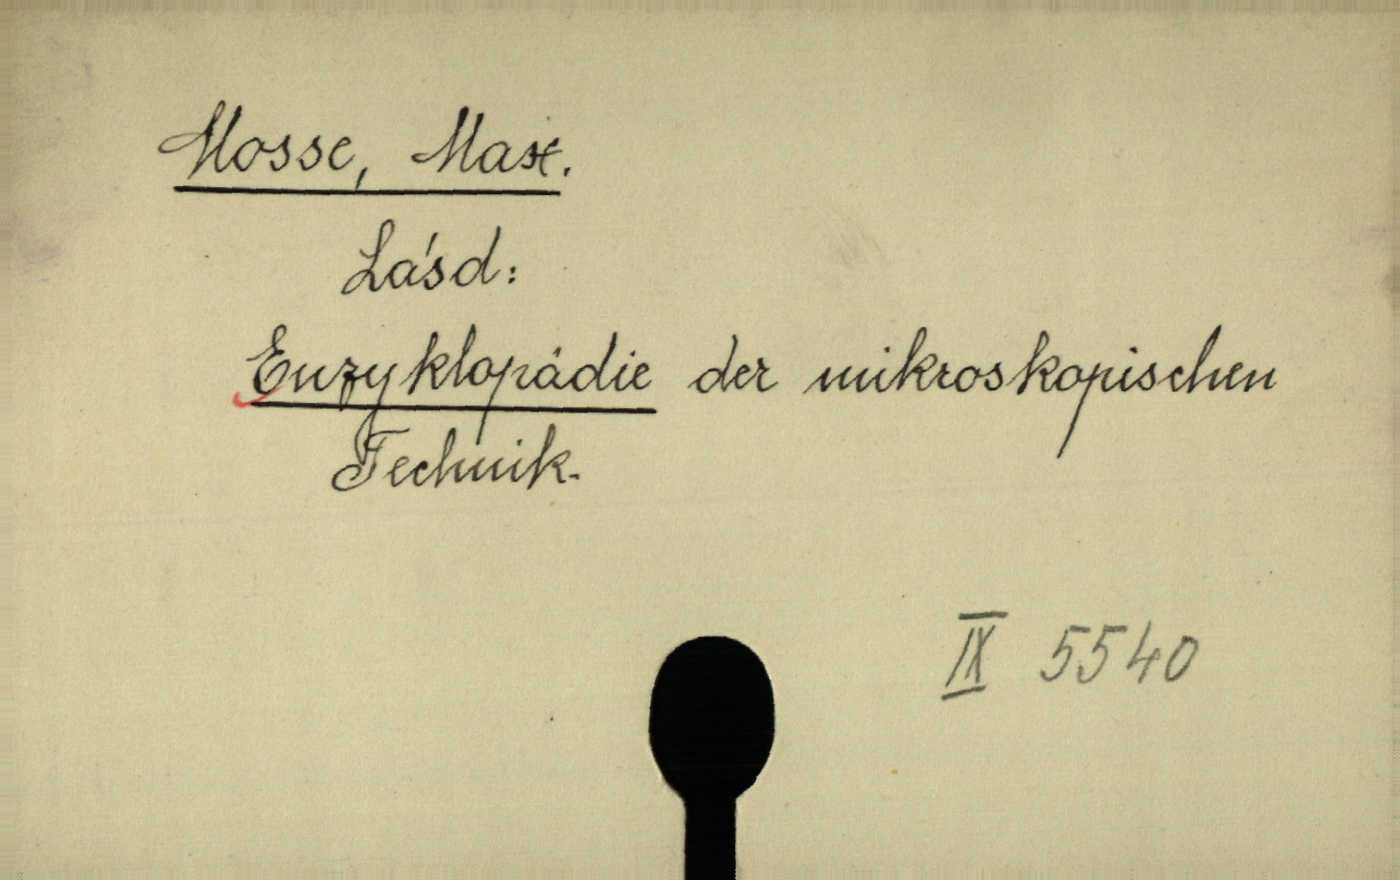 Mosse, Max.
Lásd:
Enzyklopädie der mikroskopischen
Technik.
IX 5540